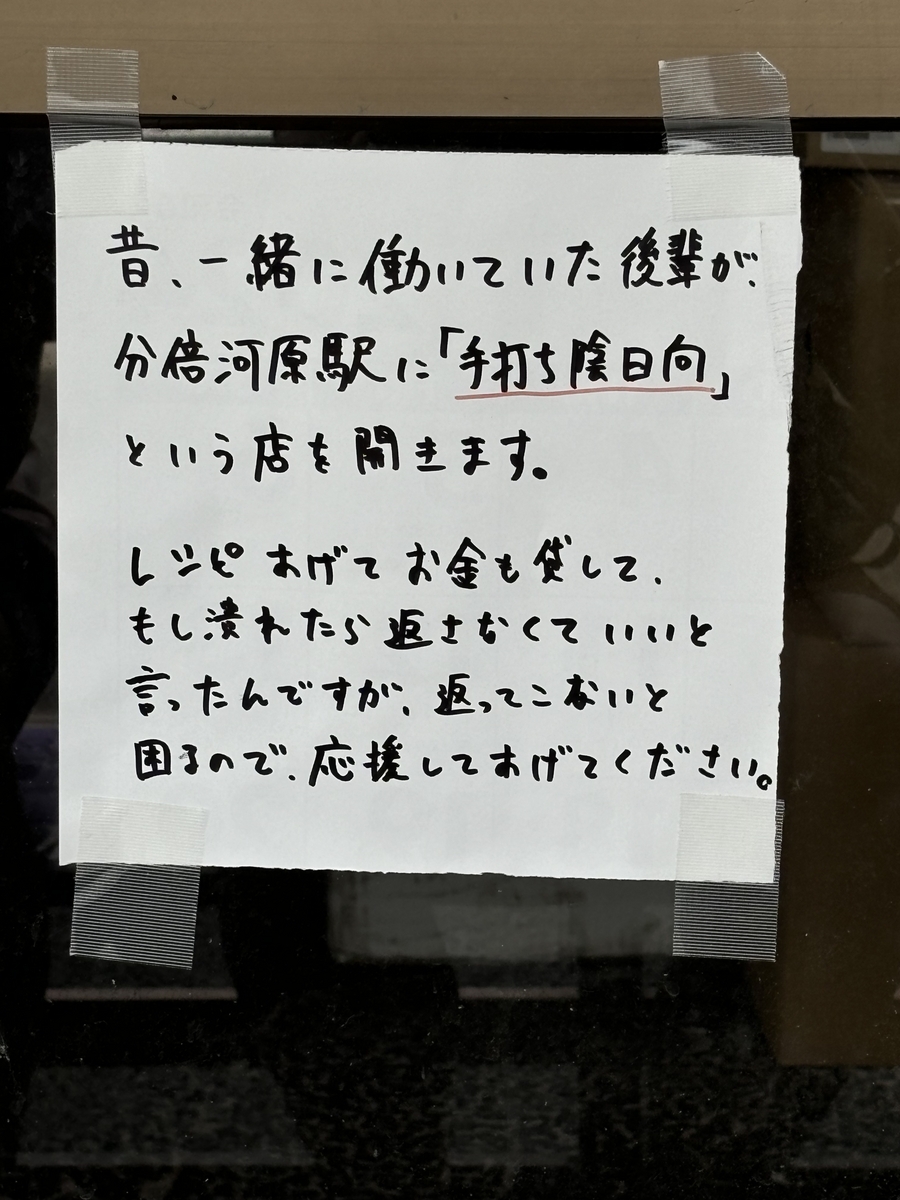 昔、一緒に働いていた後輩が、
分倍河原駅に「手打ち陰日向」
という店を開きます。
レシピあげてお金も貸して、
もし潰れたら返さなくていいと
言ったんですが、返ってこないと
困るので、応援してあげてください。